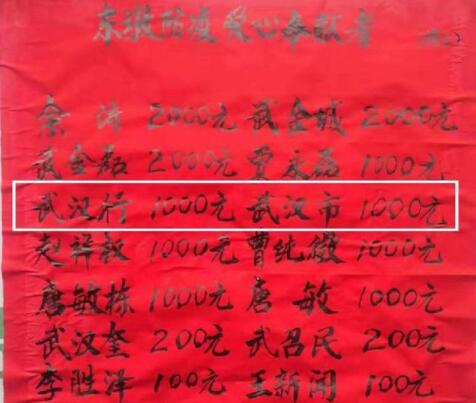 东墩防疫爱心奉献者
余涛 2000元 武金城 2000元
武金磊 2000元 贾永磊 1000元
武汉行 1000元 武汉市 1000元
赵祥叙 1000元 曹纯徽 1000元
唐敏栋 1000元 唐敏 1000元
武汉奎 200元 武召民 200元
李胜泽 100元 王新闻 100元